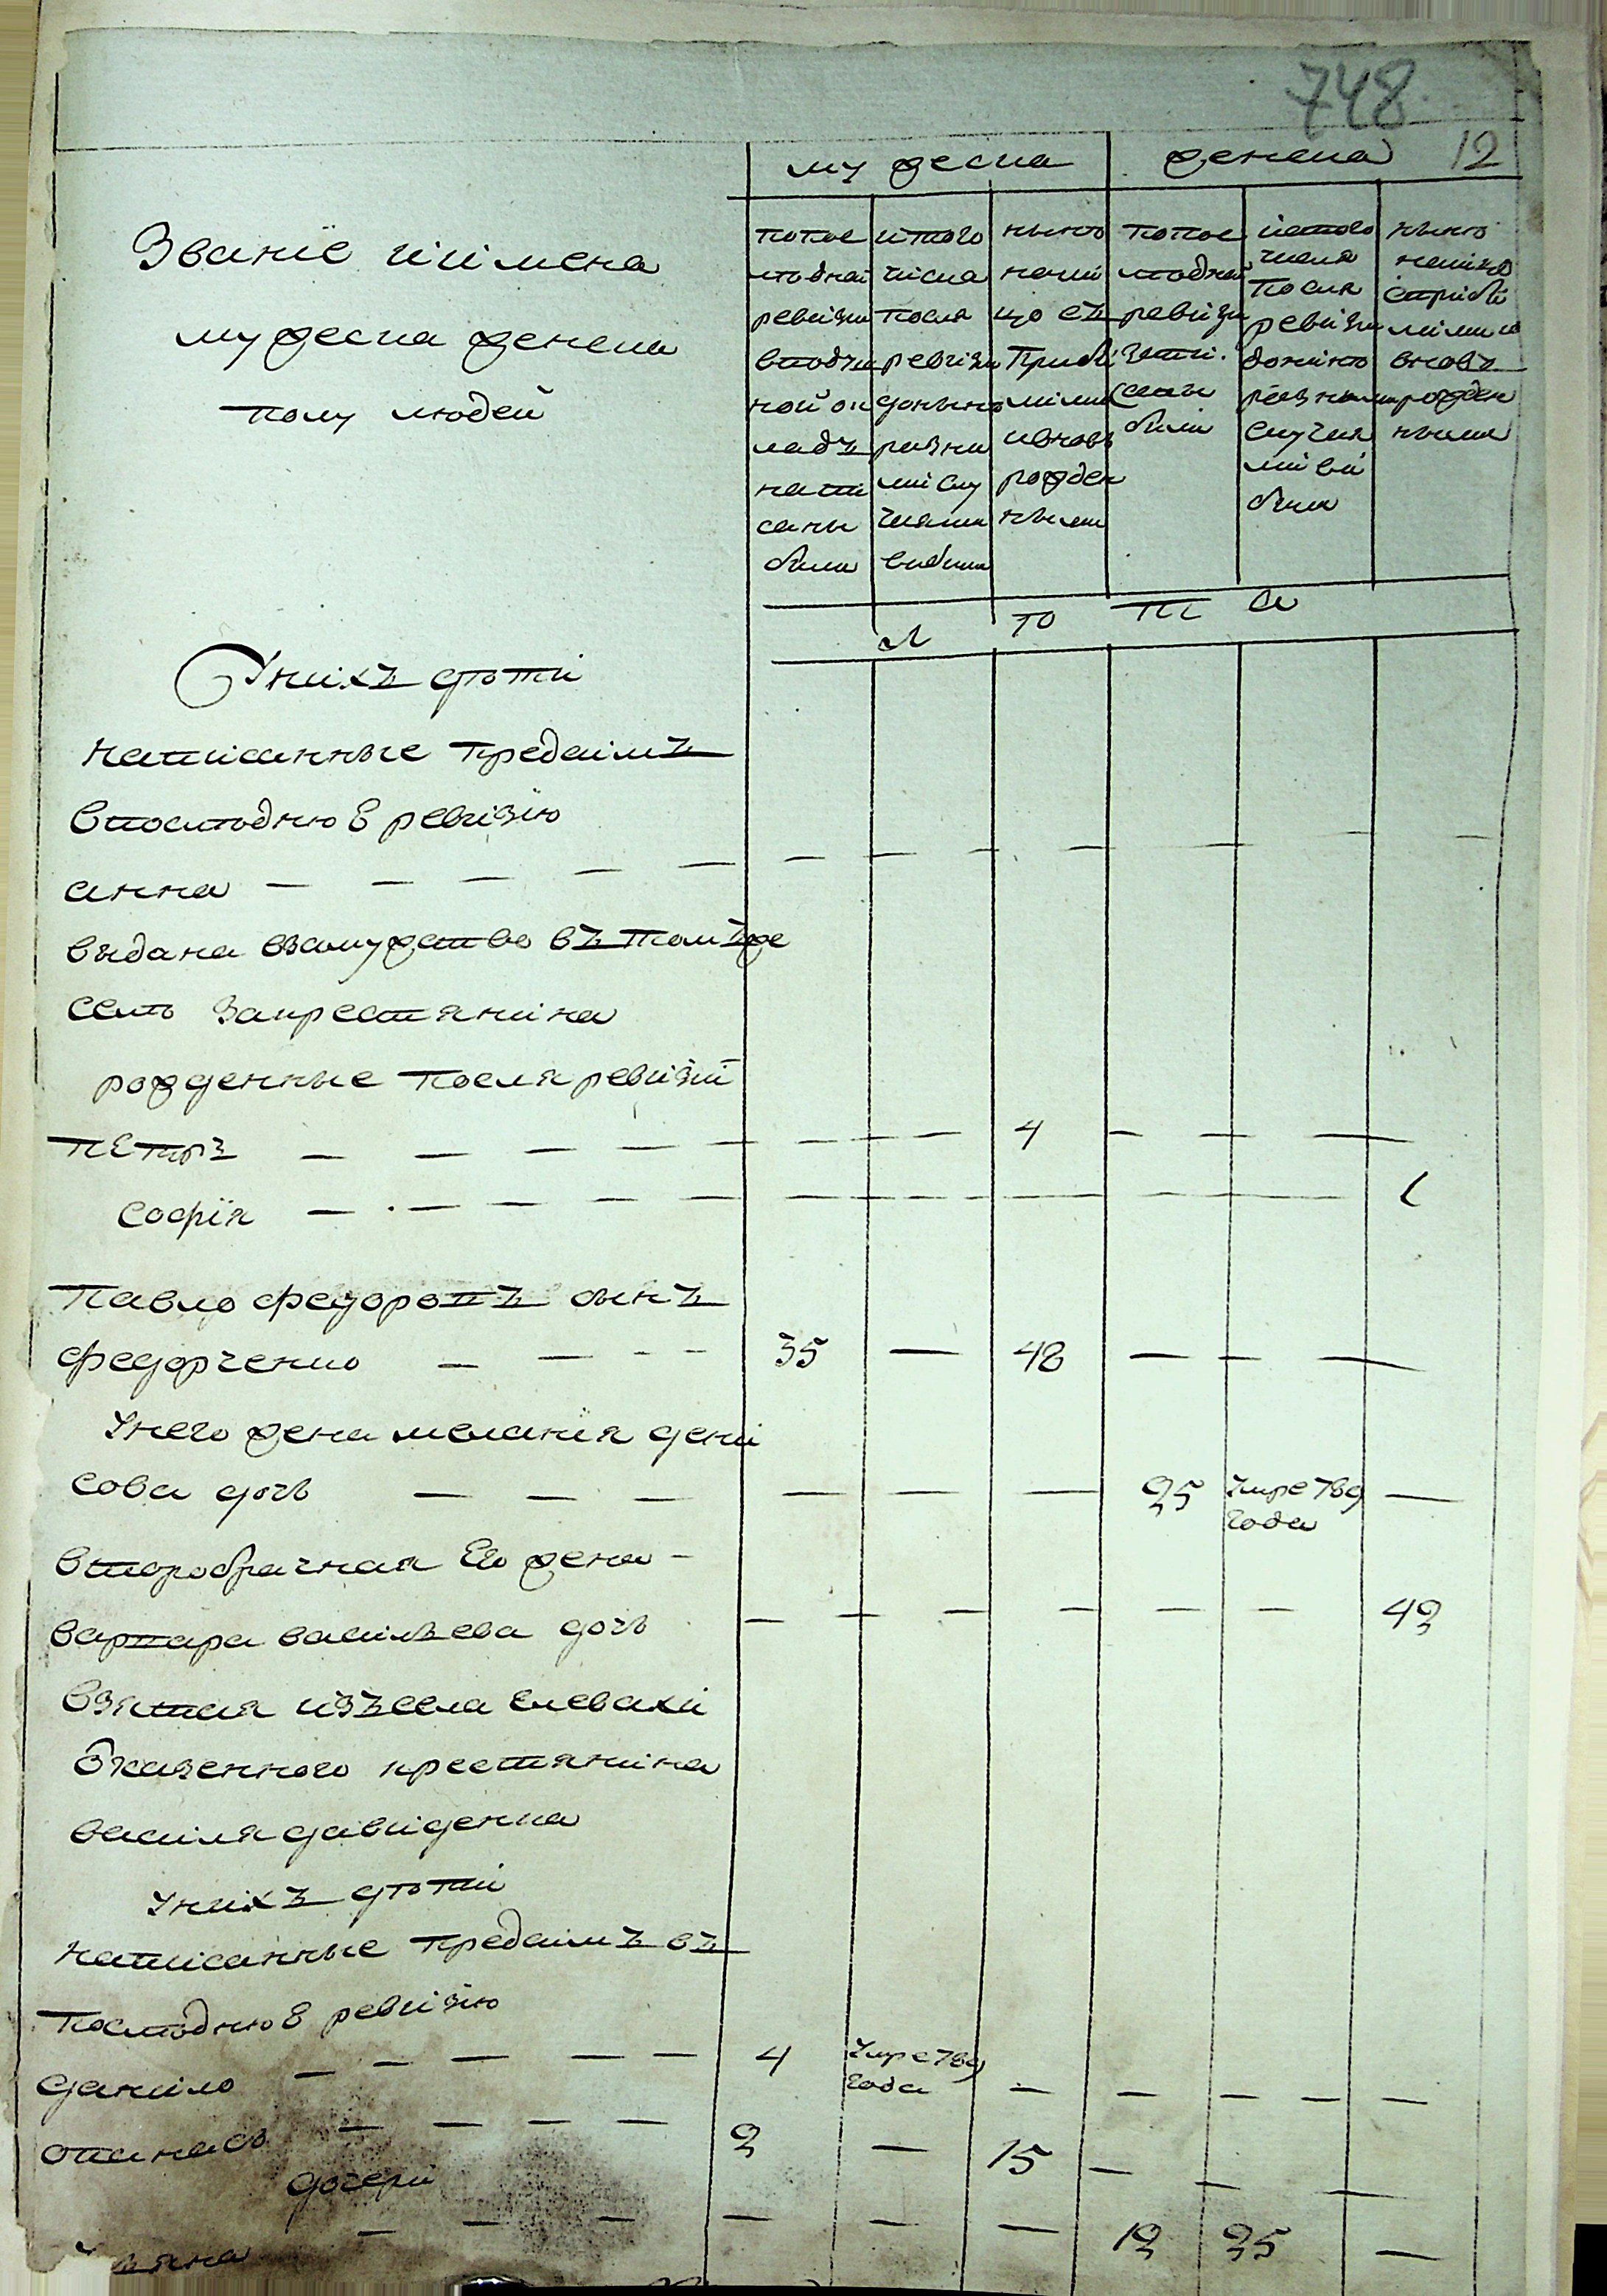 748
12
муҗеска
җенска
Званїе и имена
муҗеска җенска
полу людей
попос
лѣдней
ревизии
в подуш
ной ок
ладъ
напи
саны
были
ис того
числа
после
ревизии
до нынѣ
разны
ми слу
чаями
выбыли
нынѣ
на ли
цо съ
прибы
лыми
и вновь
рожден
ными
попос
лѣдней
ревизи
напи
саны
были
ис того
числа
после
ревизии
до нинѣ
разными
случая
ми вы
были
нынѣ
на лицо
с прибы
лими и
вновь
рожден
ными
Л Ѣ ТЪ
У нихъ дѣти
написанные предсимъ
в послѣднюЕ ревизїю
анна
выдана взамуҗство въ томъ же
селѣ за крестянина
рожденные посля ревизий
пЕтръ 4
софїя 1
Павло федоровъ сынъ
федорченко 35 48
У него җена меланїя дени
сова дочь 25 умре 789
года
второбрачная Его җена
варвара василъева дочь 42
взятая изъ села
казенного крестянина
василя давиденка
У нихъ дѣти
написанные предсимъ въ
послѣднюЕ ревизїю
данило 4 умре 789
года
опанасъ 2 15
дочери
12 25